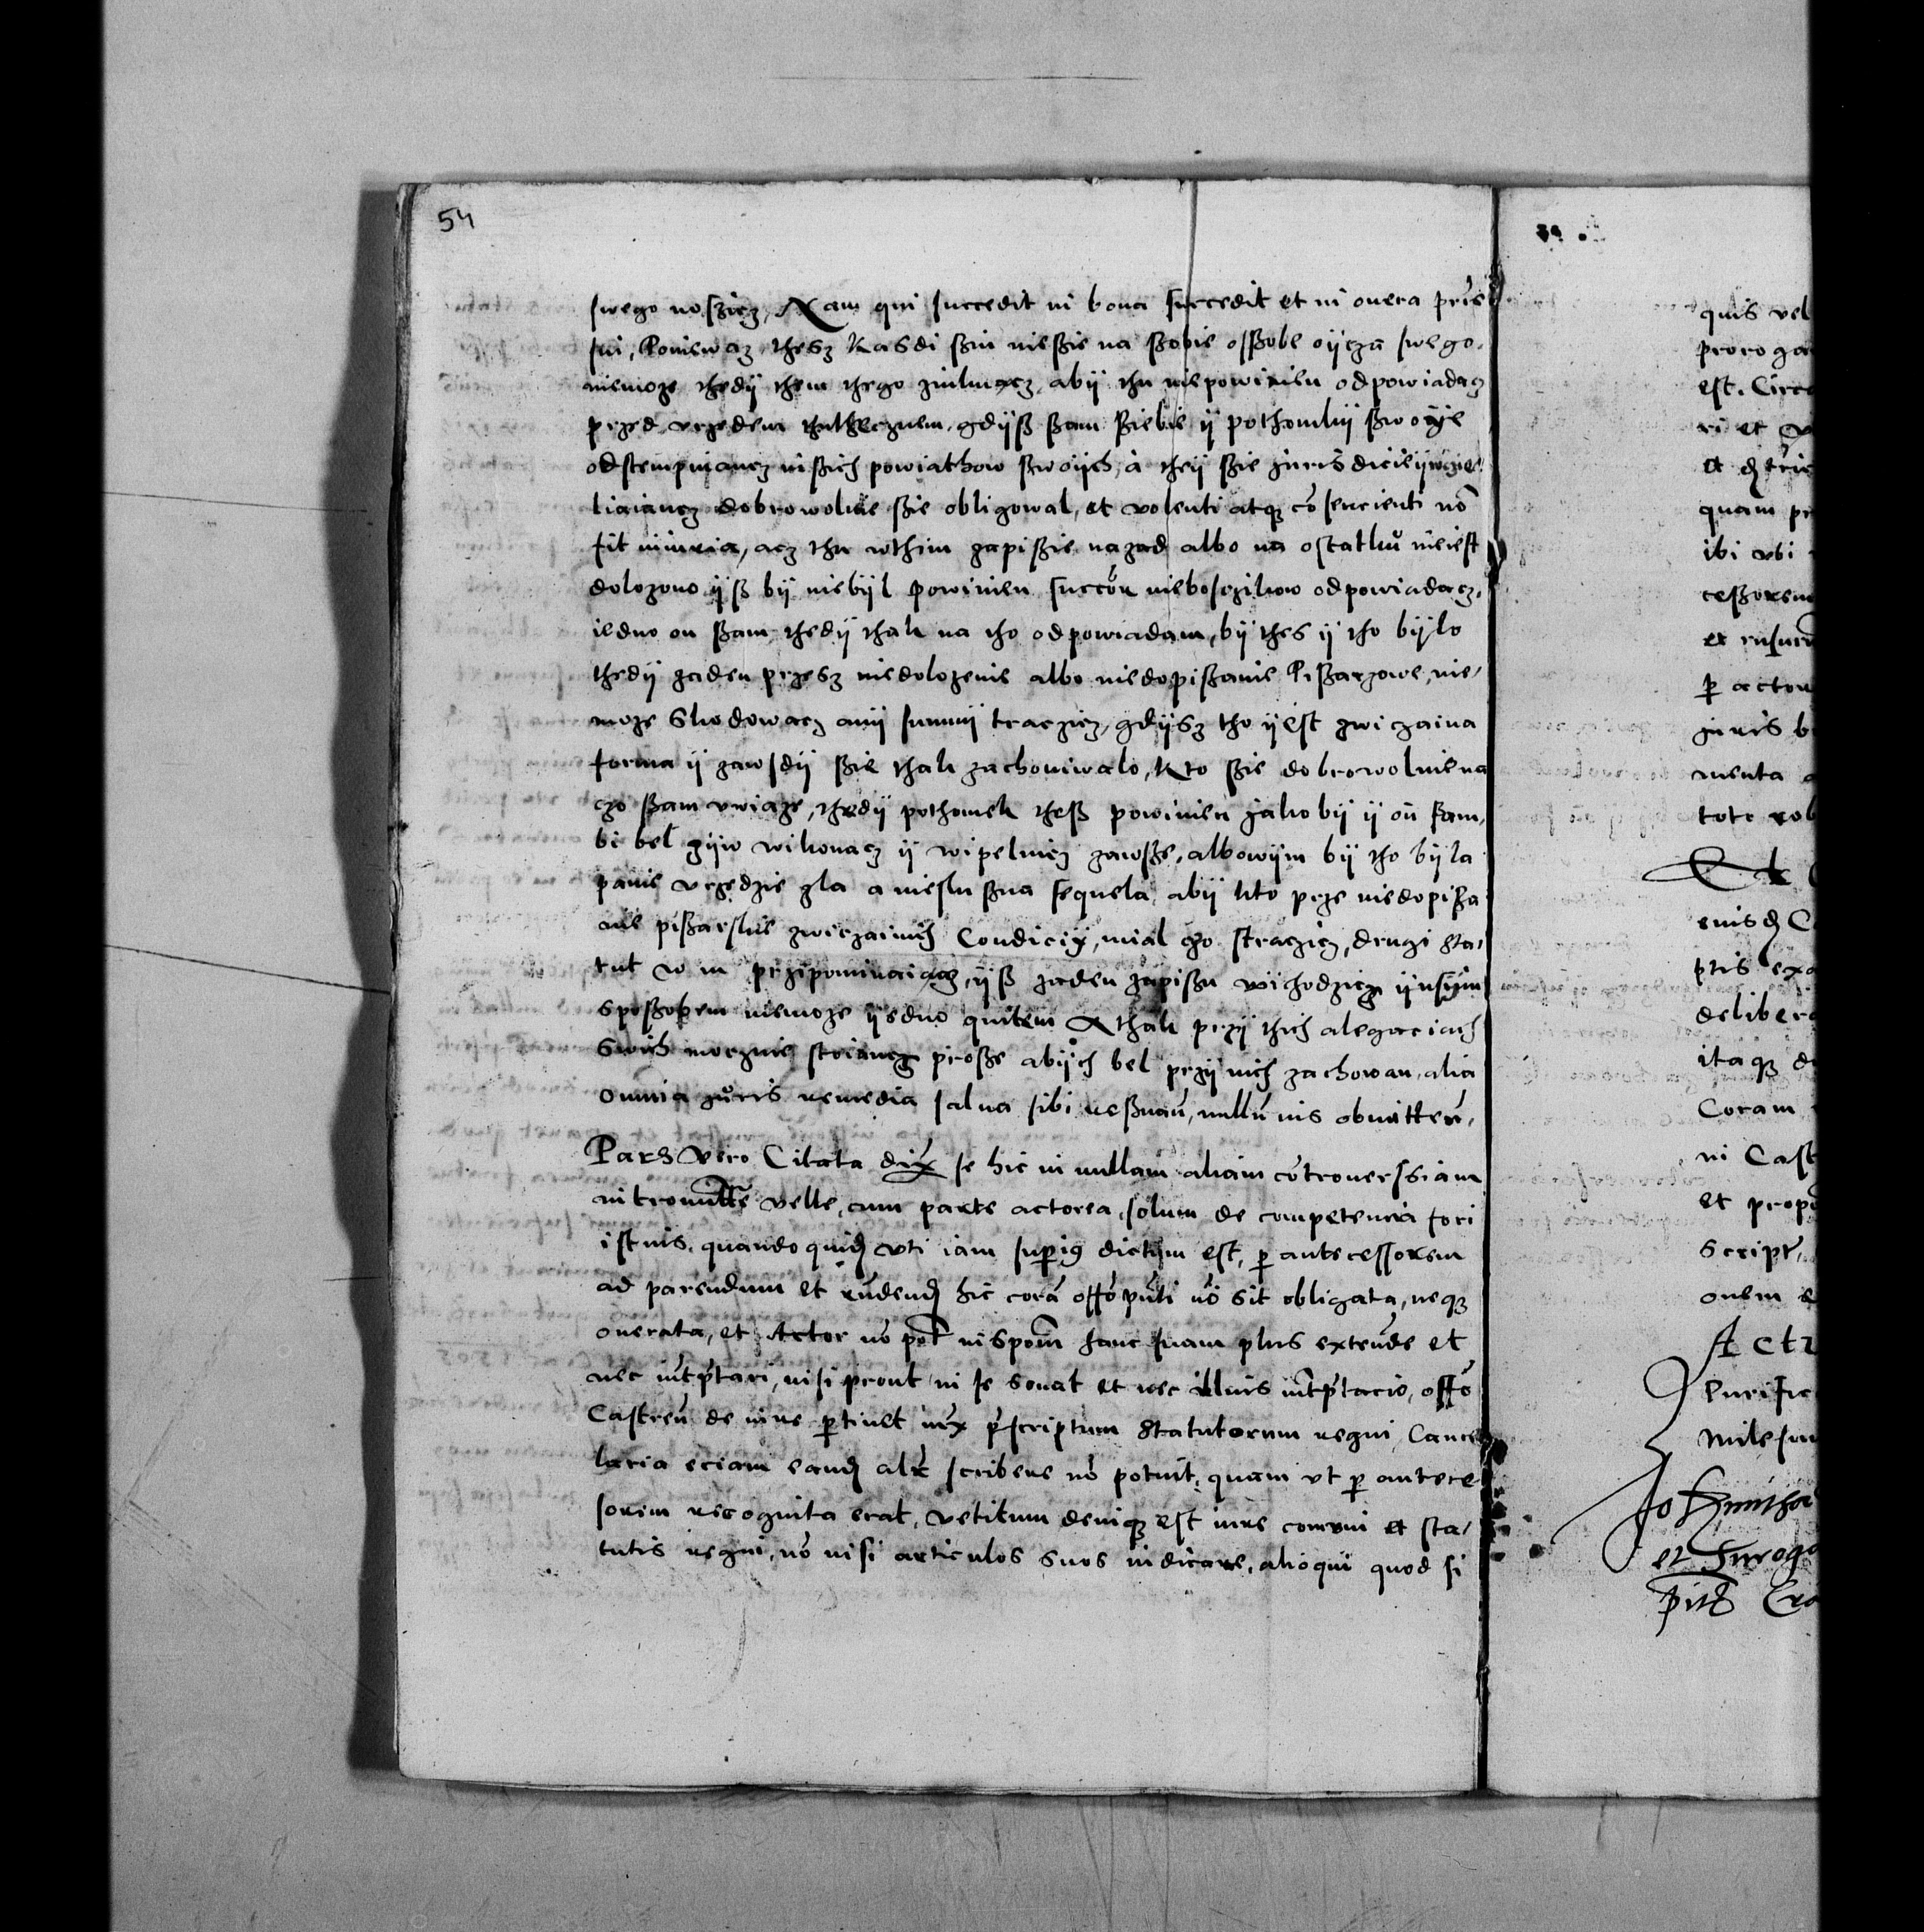 54
swego noszicz, Nam qui succedit in bona succedit et in onera pr̃is
sui, Poniewaz thesz Kasdi szin niessie na szobie osszobe oijcza swego.
niemoze thedij them thego zinlmacz, abij thu niepowinien odpowiadacz
przed vrzedem thutheznem, gdijß ßam ßiebie ij pothomkij ßwoije
odstempuiancz inßich powiathow ßwoijch, à theij ßie Jurisdiciei
liaiancz dobrowolnie ßie obligowal, et volenti atqꝫ cõsencienti nõ
fit iniuria, acz thu wthim zapißie nazad albo na ostatku nieiest
dolozono ijß bij niebijl powinien succõr nieboszczikow odpowiadacz,
iedno on ßam, thedij thak na tho odpowiadam, bij thes ij tho bijlo
thedij zaden przesz niedolozenie albo niedopißanie Pißarzowe, nie-
moze skodowacz anij summij traczicz, gdijsz tho ijest zwiczaina
forma ij zawsdij ßie thak zachowiwalo, Kto ßie dobrowolnie na
czo ßam vwiaze, thedij pothomek theß powinien jako bij ij on sam,
bi bel zijw wikonacz ij wipelnicz zawsze, albowijm bij tho bijla
panie vrzedzie zla a niesluszna sequela, abij kto prze niedopißa
nie pißarskie zwiczainich Condiciij, mial czo straczicz, drugi sta-
tut w m przipominaiacz, ijß zaden zapißu wichodzicz ijnßijm
sposzobem niemoze ijedno quitem A thak przij thich alegacciach
swich mocznie stoiancz prosze abijch bel przij nich zachowan, alia
omnia Juris remedia salua sibi reßuañ, nullũ ius obmitteñ,
Pars Vero Citata dix̃ se hic in nullam aliam cõtrouerssiam
intromittere velle, cum parte actorea, solum de competencia fori
istius, quandoquidẽ vti iam superiꝯ dictum est, ꝑ antecessorem
ad parendum et rñdendũ hic corã offõ pñti nõ sit obligata, neqꝫ
onerata, et Actor nõ pot̃ inspoñ hanc suam plus extendẽ et
nec int̃ptari, nisi prout in se sonat et nec illius int̃ptacio, offõ
Castreñ de iure ꝑtinet iux p̃scriptum Statutorum regni, Cance
laria eciam eandẽ alr̃ scribere nõ potuit, quam vt ꝑ antece
sorem recognita erat, vetitum deniqꝫ est iure comuni et sta-
tutis regni, nõ nisi articulos suos iudicare, alioqui quod si
quis vel
proroga
est. Circ
ri et
et
quam pr
ibi vbi
ceßorem
et
ꝑ actor
juris b
menta
toto
Et
eiusdẽ C
ptis exa
deliber
itaqꝫ d
Coram
in Cast
et prop
script
onem
Act
Purific
Milesim
et Surog